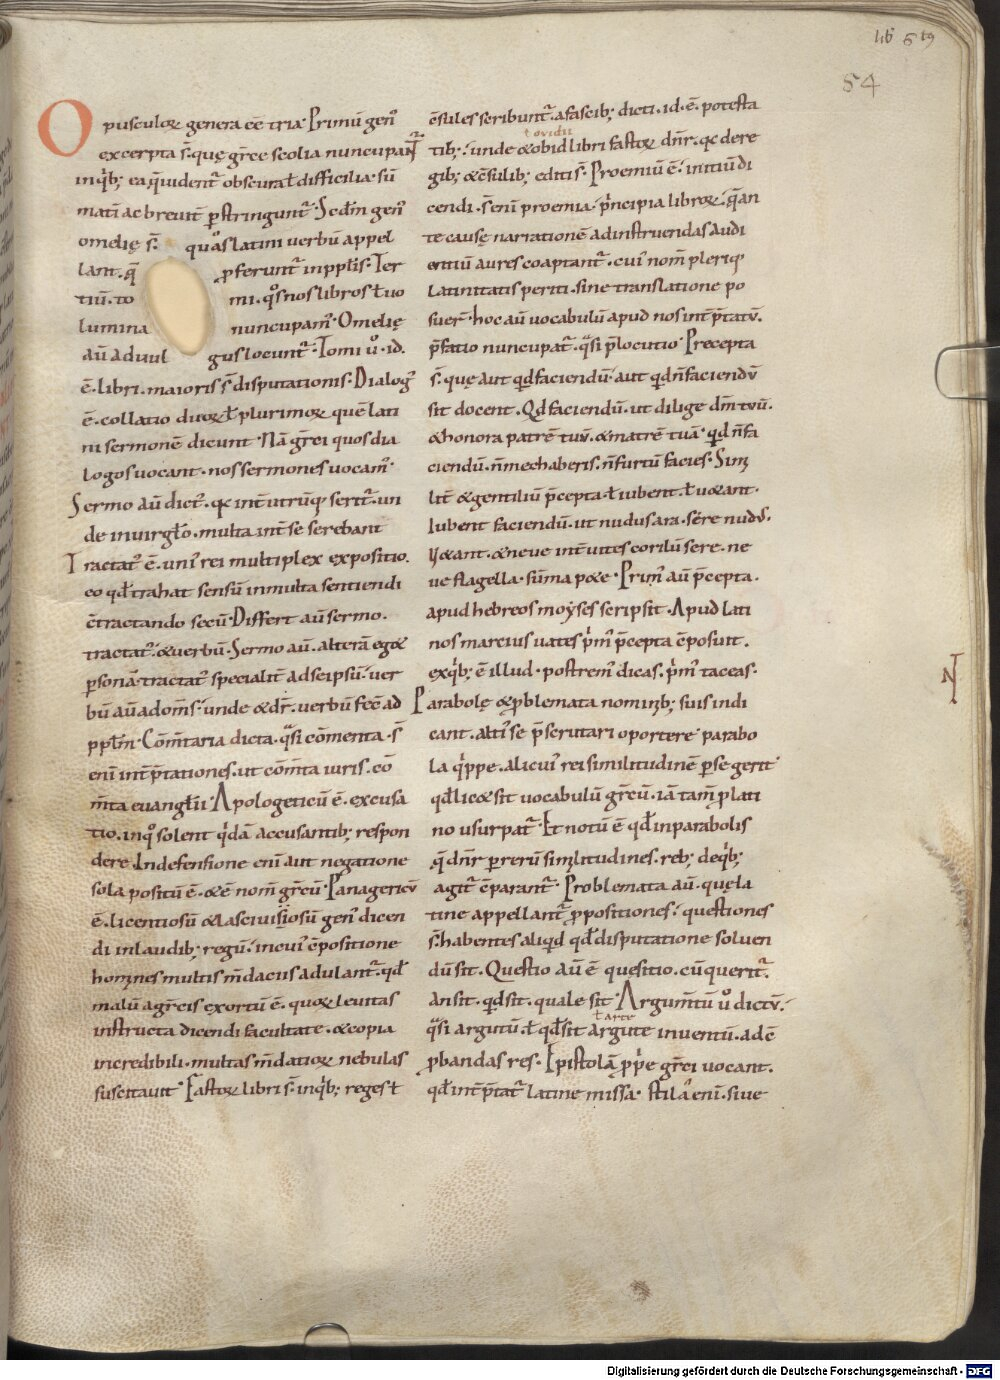 lib 6 t9
54
Opusculoꝝ genera eē tria. Primū genꝰ
excerpta s̄. quę gr̄ce scolia nuncupant᷑
inqͥb; ea q̄ uident᷑ obscura ł difficilia. sū
mati ac breuit̄ p̄stringunt᷑. Scd̄m genꝰ
omelię s̄. quas latini uerbū appel
lant. q̄ ꝓferunt᷑ in ppl̄is. Ter
tiū. to mi. qͦs nos libros ł uo
lumina nuncupamꝰ. Omelię
aū ad uul gus locunt᷑. Tomi ů. id.
ē. libri. maiores s̄ disputationis. Dialogꝰ
ē. collatio duoꝝ ł plurimoꝝ quē lati
ni sermonē dicunt. Nā gr̄ci quos dia
logos uocant. nos sermones uocamꝰ.
Sermo aū dictꝰ. qꝛ int̄ utrūq; serit᷑. un
de in uirgł̄o. multa int̄ se serebant
Tractatꝰ ē. unīꝰ rei multiplex expositio.
eo qđ trahat sensū in multa sentiendi
c̄tractando secū. Differt aū sermo.
tractatꝰ. & uerbū. Sermo aū. alterā eg&
ꝑsonā. tractatꝰ specialit̄ ad seipsū. uer
bū aū ad om̄s. unde & dr̄. uerbū fec̄ ad
ppl̄m. Com̄taria dicta. qͣsi cōmenta. s̄
eni int̄p̄tationes. ut com̄ta iuris. cō
m̄ta euangł̄ii. Apologeticū ē. excusa
tio. in qͦ solent qͥdā accusantib; respon
dere. In defensione eni aut negatione
sola positū ē. & ē nom̄ gr̄cū. Panagericū
ē. licentiosū & lasciuiosū genꝰ dicen
di in laudib; regū. in cuiꝰ c̄positione
homines multis m̄daciis adulant᷑. qđ
malū a gr̄cis exortū ē. quoꝝ leuitas
instructa dicendi facultate. & copia
incredibili. multas m̄datioꝝ nebulas
suscitauit. Fastoꝝ libri s̄. inqͥb; reges ł
c̄sules scribunt᷑. a fascib; dicti. id. ē. potesta
ł ouidii
tib;. unde & obid libri fastoꝝ dn̄r. qꝛ de re
gib; & c̄sulib; editi s̄. Proemiū ē. initiū di
cendi. s̄ eni proemia. pͥncipia libroꝝ. q̄ an
te causę narrationē ad instruendas audi
entiū aures coaptant᷑. cuiꝰ nom̄ pleriq;
latinitatis periti. sine translatione po
suer̄. hoc aū uocabulū apud nos int̄p̄tatū.
p̄fatio nuncupat᷑. qͣsi p̄locutio. Precepta
s̄. quę aut qͥd faciendū. aut qͥd n̄ faciendū
sit docent. Qđ faciendū. ut dilige dn̄m tuū.
& honora patrē tuū. & matrē tuā. qͥd n̄ fa
ciendū. n̄ mechaberis. n̄ furtū facies. Simi
lit̄ & gentiliū p̄cepta. ł iubent. ł u&ant.
Iubent faciendū. ut nudus ara. sere nudꝰ.
U&ant. & neue int̄ uites corilū sere. ne
ue flagella. sūma p&e. Primꝰ aū p̄cepta.
apud hebreos moẏses scripsit. Apud lati
nos marcius uates pͥmꝰ p̄cepta c̄posuit.
ex qͥb; ē illud. postremꝰ dicas. pͥmꝰ taceas.
Parabolę & ꝓblemata nominib; suis indi
cant. altiꝰ se p̄scrutari oportere. parabo
la qͥppe. alicuiꝰ rei similitudinē p̄ se gerit
qđ lic& sit uocabulū gr̄cū. iā tam̄ ꝓ lati
no usurpat᷑. Et notū ē qđ in parabolis
q̄ dn̄r ꝑ rerū similitudines. reb; de qͥb;
agit᷑ c̄parant᷑. Problemata aū. quę la
tine appellant᷑ ꝓpositiones. questiones
s̄ habentes aliqͥd qđ disputatione soluen
dū sit. Questio aū ē quesitio. cū querit᷑.
an sit. qͥd sit. quale sit. Argum̄tū ů dictū.
ł arte
qͣsi argutū. ł qđ sit argute inuentū. ad c̄
ꝓbandas res. Epistolā ꝓpͥe gr̄ci uocant.
qđ int̄p̄tat᷑ latine missa. stila eni. siue
N
Digitalisierung gefördert durch die Deutsche Forschungsgemeinschaft - DFG